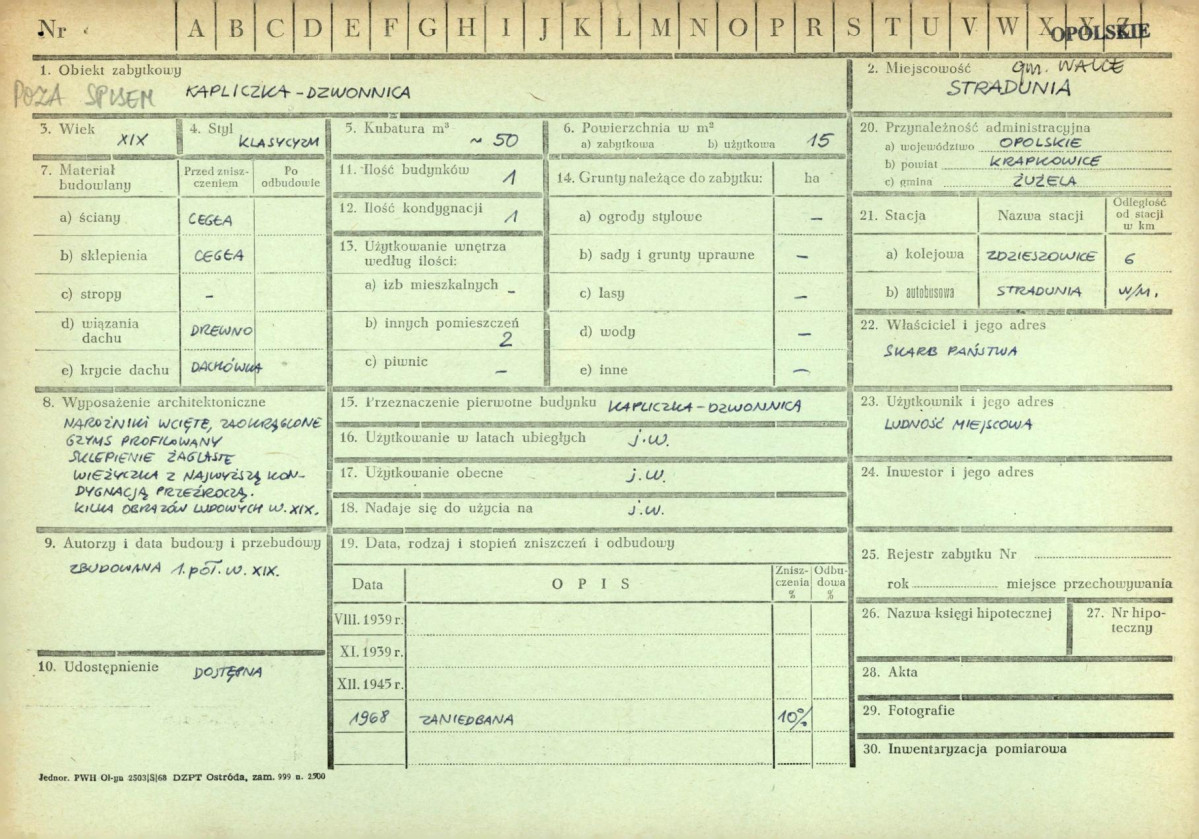 Nr A B C D E F G H I J K L M N O P R S T U V W X Y Z OPOLSKIE
1. Obiekt zabytkowy
POZA SPISEM KAPLICZKA-DZWONNICA
2. Miejscowość gm. WALCE
STRADUNIA
3. Wiek XIX
4. Styl KLASYCYZM
5. Kubatura m³ ~ 50
6. Powierzchnia w m²
a) zabytkowa b) użytkowa 15
7. Materiał budowlany
Przed zniszczeniem
Po odbudowie
a) ściany CEGŁA
b) sklepienia CEGŁA
c) stropy -
d) wiązania dachu DREWNO
e) krycie dachu DACHÓWKA
8. Wyposażenie architektoniczne
NAROŻNIKI WCIĘTE, ZAOKRĄGLONE
GZYMS PROFILOWANY
SKLEPIENIE ŻAGLASTE
WIEŻYCZKA Z NAJWYŻSZĄ KON-
DYGNACJĄ PRZEŹROCZĄ.
KILKA OBRAZÓW LUDOWYCH W. XIX.
9. Autorzy i data budowy i przebudowy
ZBUDOWANA 1. poł. w. XIX.
10. Udostępnienie DOSTĘPNA
11. Ilość budynków 1
12. Ilość kondygnacji 1
13. Użytkowanie wnętrza
według ilości:
a) izb mieszkalnych -
b) innych pomieszczeń
2
c) piwnic -
14. Grunty należące do zabytku: ha
a) ogrody stylowe -
b) sady i grunty uprawne -
c) lasy -
d) wody -
e) inne -
15. Przeznaczenie pierwotne budynku KAPLICZKA-DZWONNICA
16. Użytkowanie w latach ubiegłych j.w.
17. Użytkowanie obecne j.w.
18. Nadaje się do użycia na j.w.
19. Data, rodzaj i stopień zniszczeń i odbudowy
Data OPIS Zniszczenia % Odbudowa %
VIII. 1939 r.
XI. 1939 r.
XII. 1945 r.
1968 ZANIEDBANA 10%
20. Przynależność administracyjna
a) województwo OPOLSKIE
b) powiat KRAPKOWICE
c) gmina ŻUŻELA
21. Stacja Nazwa stacji Odległość od stacji w km
a) kolejowa ZDZIESZOWICE 6
b) autobusowa STRADUNIA W/M.
22. Właściciel i jego adres
SKARB PAŃSTWA
23. Użytkownik i jego adres
LUDNOŚĆ MIEJSCOWA
24. Inwestor i jego adres
25. Rejestr zabytku Nr
rok miejsce przechowywania
26. Nazwa księgi hipotecznej
27. Nr hipoteczny
28. Akta
29. Fotografie
30. Inwentaryzacja pomiarowa
Jednor. PWH Ol-yn 2503|S|68 DZPT Ostróda, zam. 999 n. 2500